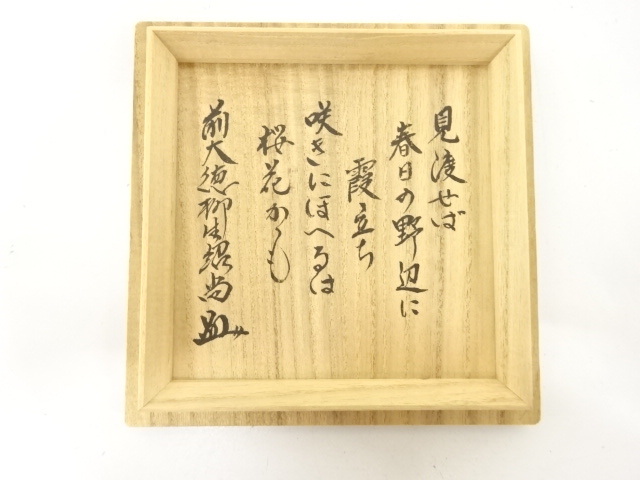 見渡せば
春日の野辺に
霞立ち
咲きにほへるは
桜花かも
前大徳柳生紹尚